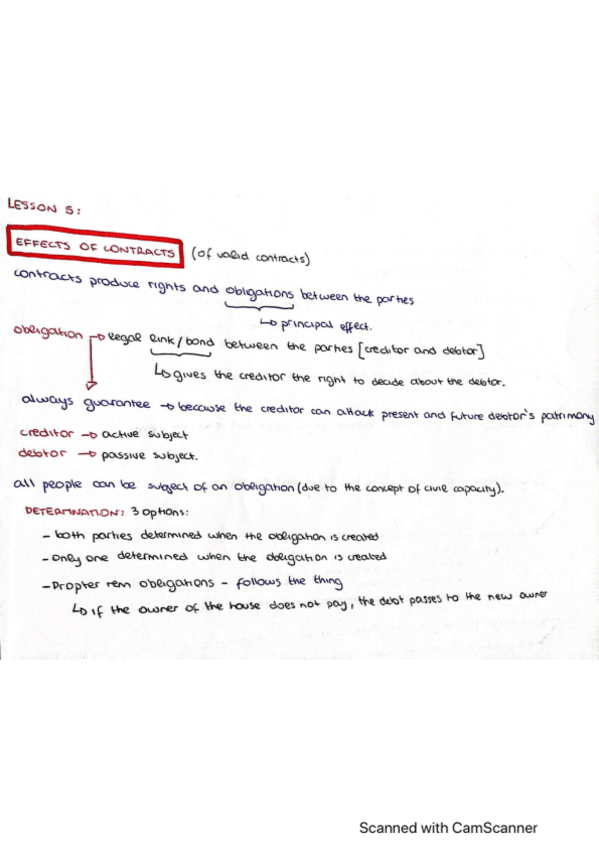 LESSON 5:
EFFECTS OF CONTRACTS (of valid contracts)
contracts produce rights and obligations between the parties
↳ principal effect.
obligation → legal link/bond between the parties [creditor and debtor]
↳ gives the creditor the right to decide about the debtor.
always guarantee → because the creditor can attack present and future debtor's patrimony
creditor → active subject
debtor → passive subject.
all people can be subject of an obligation (due to the concept of civil capacity).
DETERMINATION: 3 options:
- both parties determined when the obligation is created
- only one determined when the obligation is created
- Propter rem obligations - follows the thing
↳ if the owner of the house does not pay, the debt passes to the new owner
Scanned with CamScanner